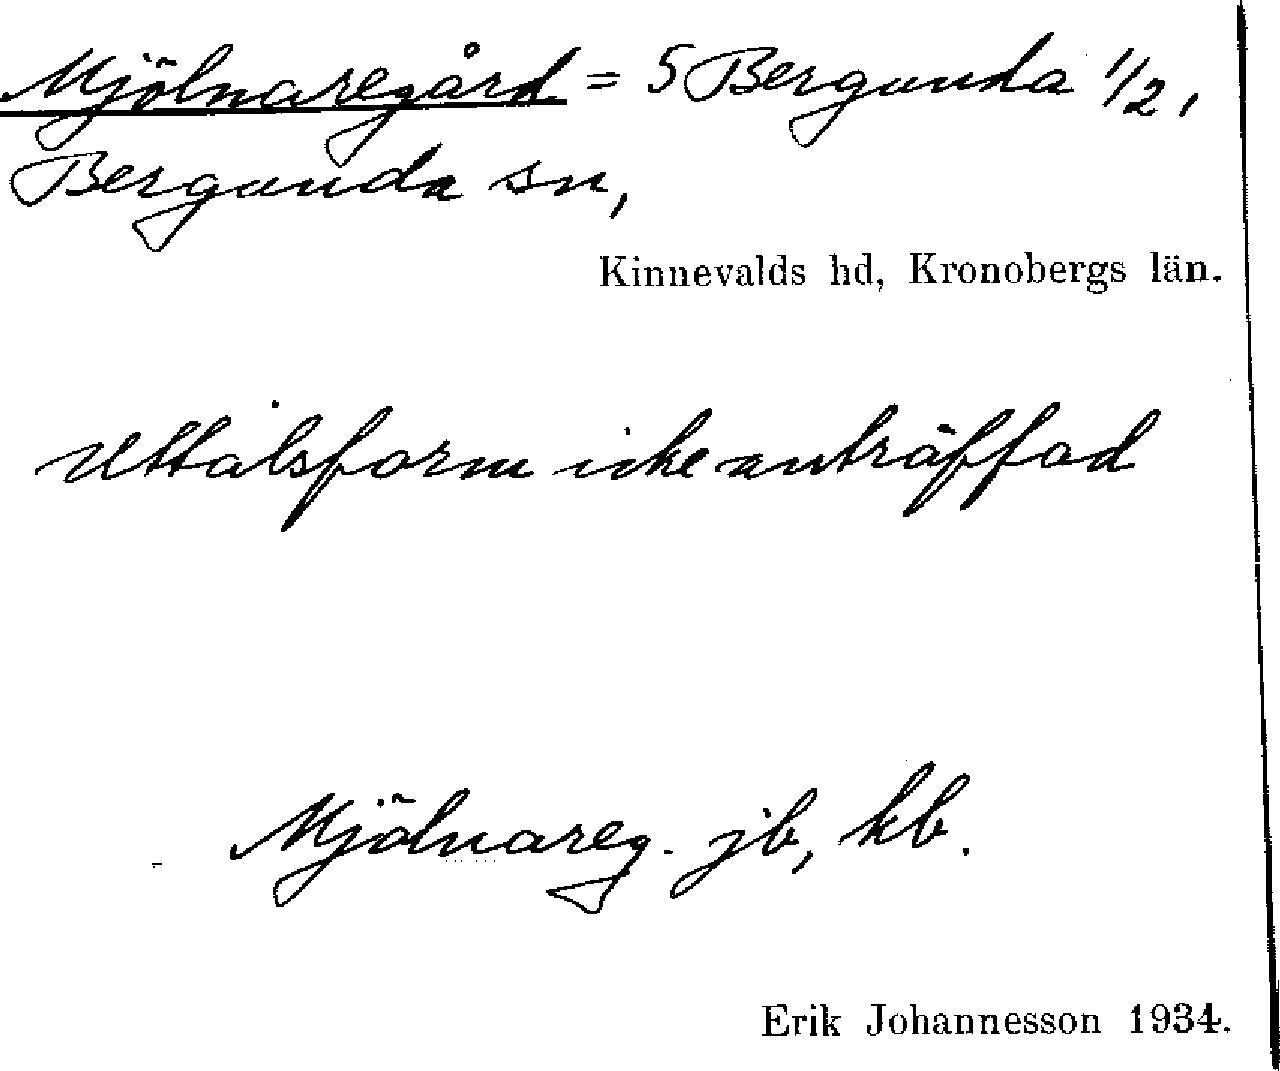 Mjölnaregård = 5 Bergunda 1/2,
Bergunda sn,
Kinnevalds hd, Kronobergs län.
Uttalsform icke anträffad
Mjölnareg. jb, kb.
Erik Johannesson 1934.